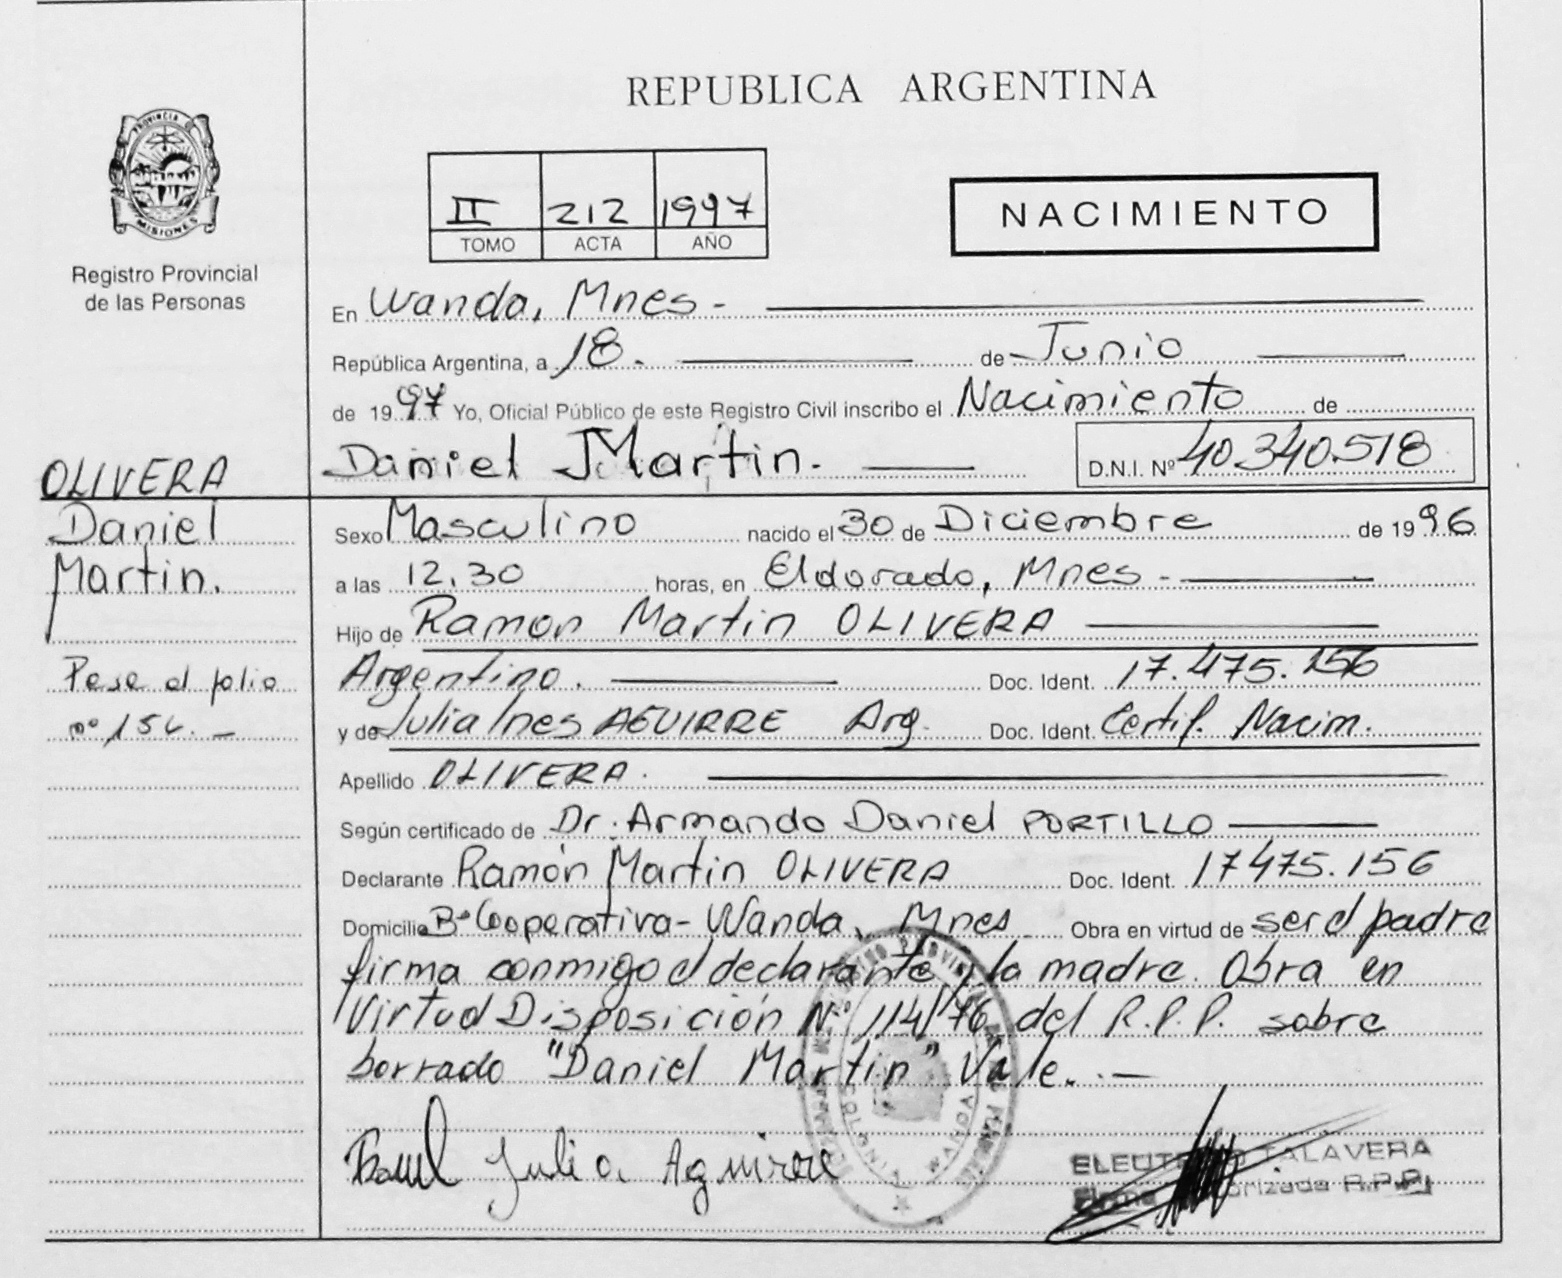 REPUBLICA ARGENTINA
PROVINCIA D
MISIONES
Registro Provincial
de las Personas
II 212 1997
TOMO ACTA AÑO
NACIMIENTO
En Wanda, Mnes -
República Argentina, a 18. de Junio
de 1997 Yo, Oficial Público de este Registro Civil inscribo el Nacimiento de
Daniel Martin. D.N.I. Nº 40.340.518
OLIVERA
Daniel
Martin.
Pese al folio
nº 154. -
Sexo Masculino nacido el 30 de Diciembre de 1996
a las 12.30 horas, en Eldorado, Mnes -
Hijo de Ramon Martin OLIVERA
Argentino. Doc. Ident. 17.475.156
y de Julia Ines AGUIRRE Arg. Doc. Ident. Certif. Nacim.
Apellido OLIVERA.
Según certificado de Dr. Armando Daniel PORTILLO
Declarante Ramón Martin OLIVERA Doc. Ident. 17475.156
Domicilio Bº Cooperativa - Wanda, Mnes Obra en virtud de ser el padre
firma conmigo el declarante y la madre. Obra en
Virtud Disposición Nº 114/76 del R.P.P. sobre
borrado "Daniel Martin" Vale. -
Julia Aguirre
TALAVERA
Firma orizada R.P.P.
COLONIA WANDA